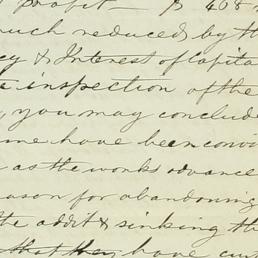 profit $ 408
much reduced by th
cy & Interest of Capita
e inspection of the
, you may conclude
me have been convi
as the works advance
ason for abandoning
the addit & sinking th
that they have